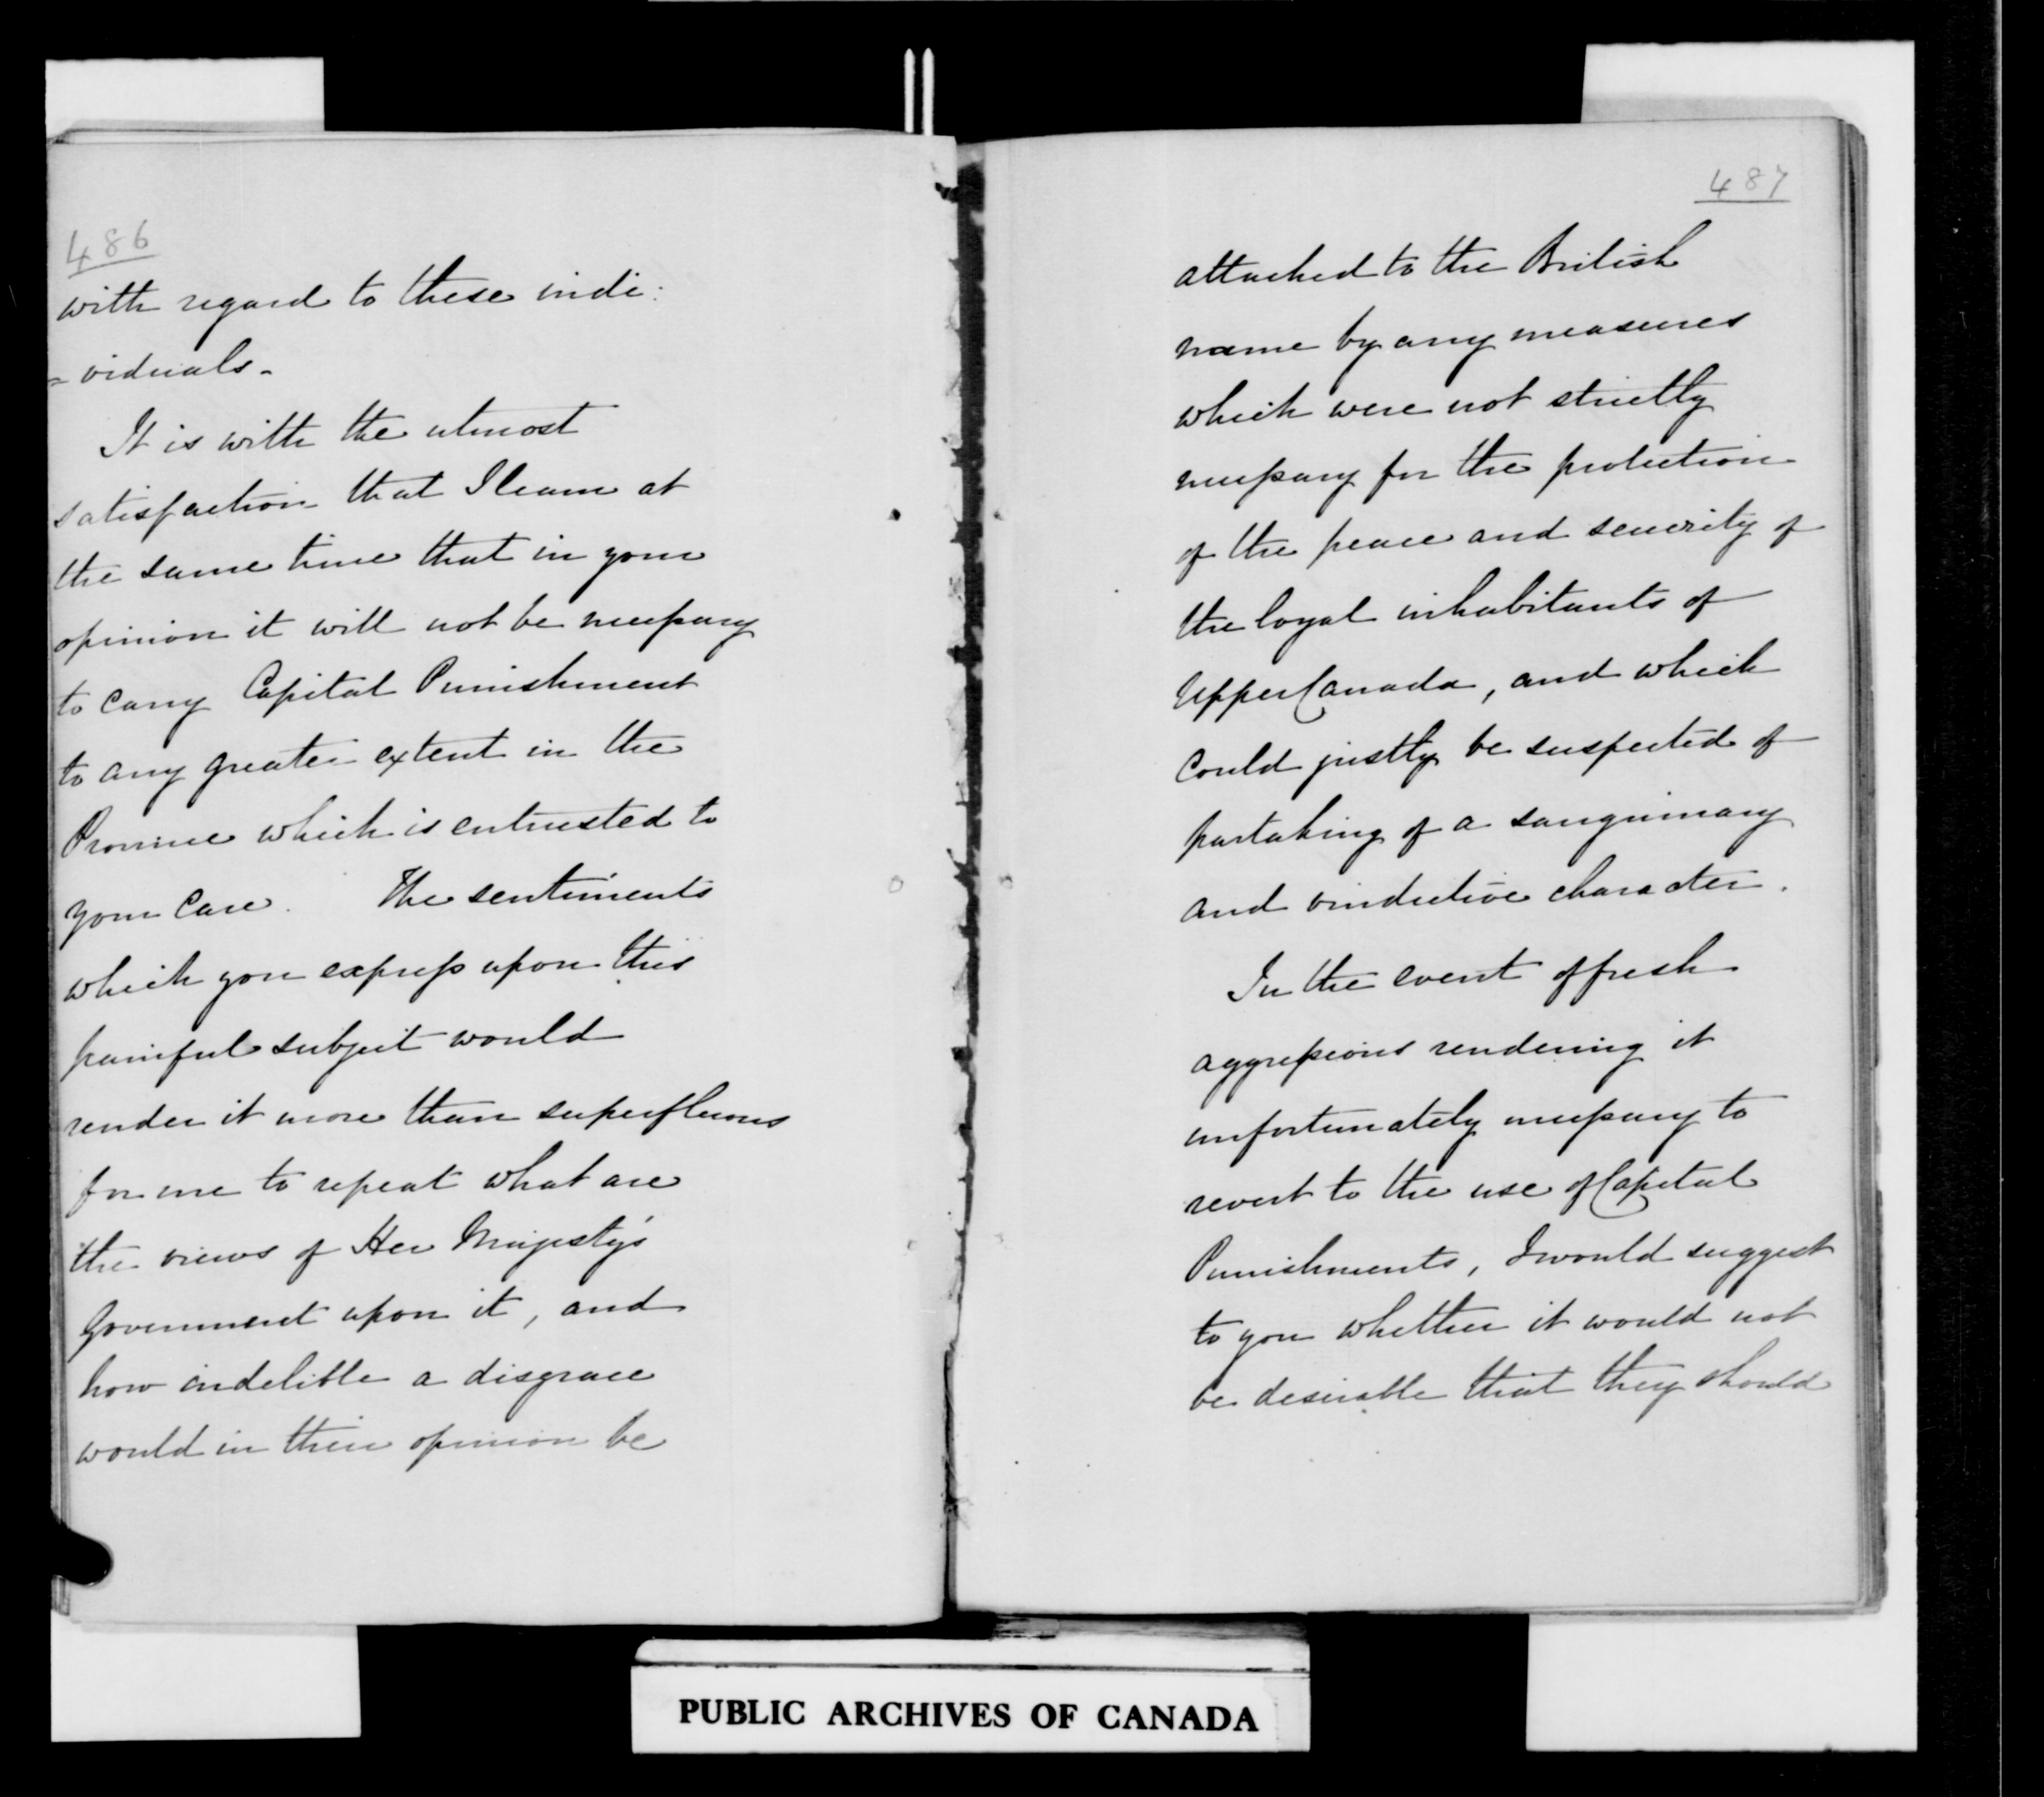 486
with regard to these indi:
= viduals -
It is with the utmost
satisfaction that I learn at
the same time that in your
opinion it will not be necessary
to carry Capital Punishment
to any greater extent in the
Province which is entrusted to
your care. The sentiments
which you express upon this
painful subject would
render it more than superfluous
for me to repeat what are
the views of Her Majesty's
Government upon it, and
how indelible a disgrace
would in their opinion be
487
attached to the British
name by any measures
which were not strictly
necessary for the protection
of the peace and security of
the loyal inhabitants of
Upper Canada, and which
could justly be suspected of
partaking of a sanguinary
and vindictive character.
In the event of fresh
aggressions rendering it
unfortunately necessary to
revert to the use of Capital
Punishments, I would suggest
to you whether it would not
be desirable that they should
PUBLIC ARCHIVES OF CANADA